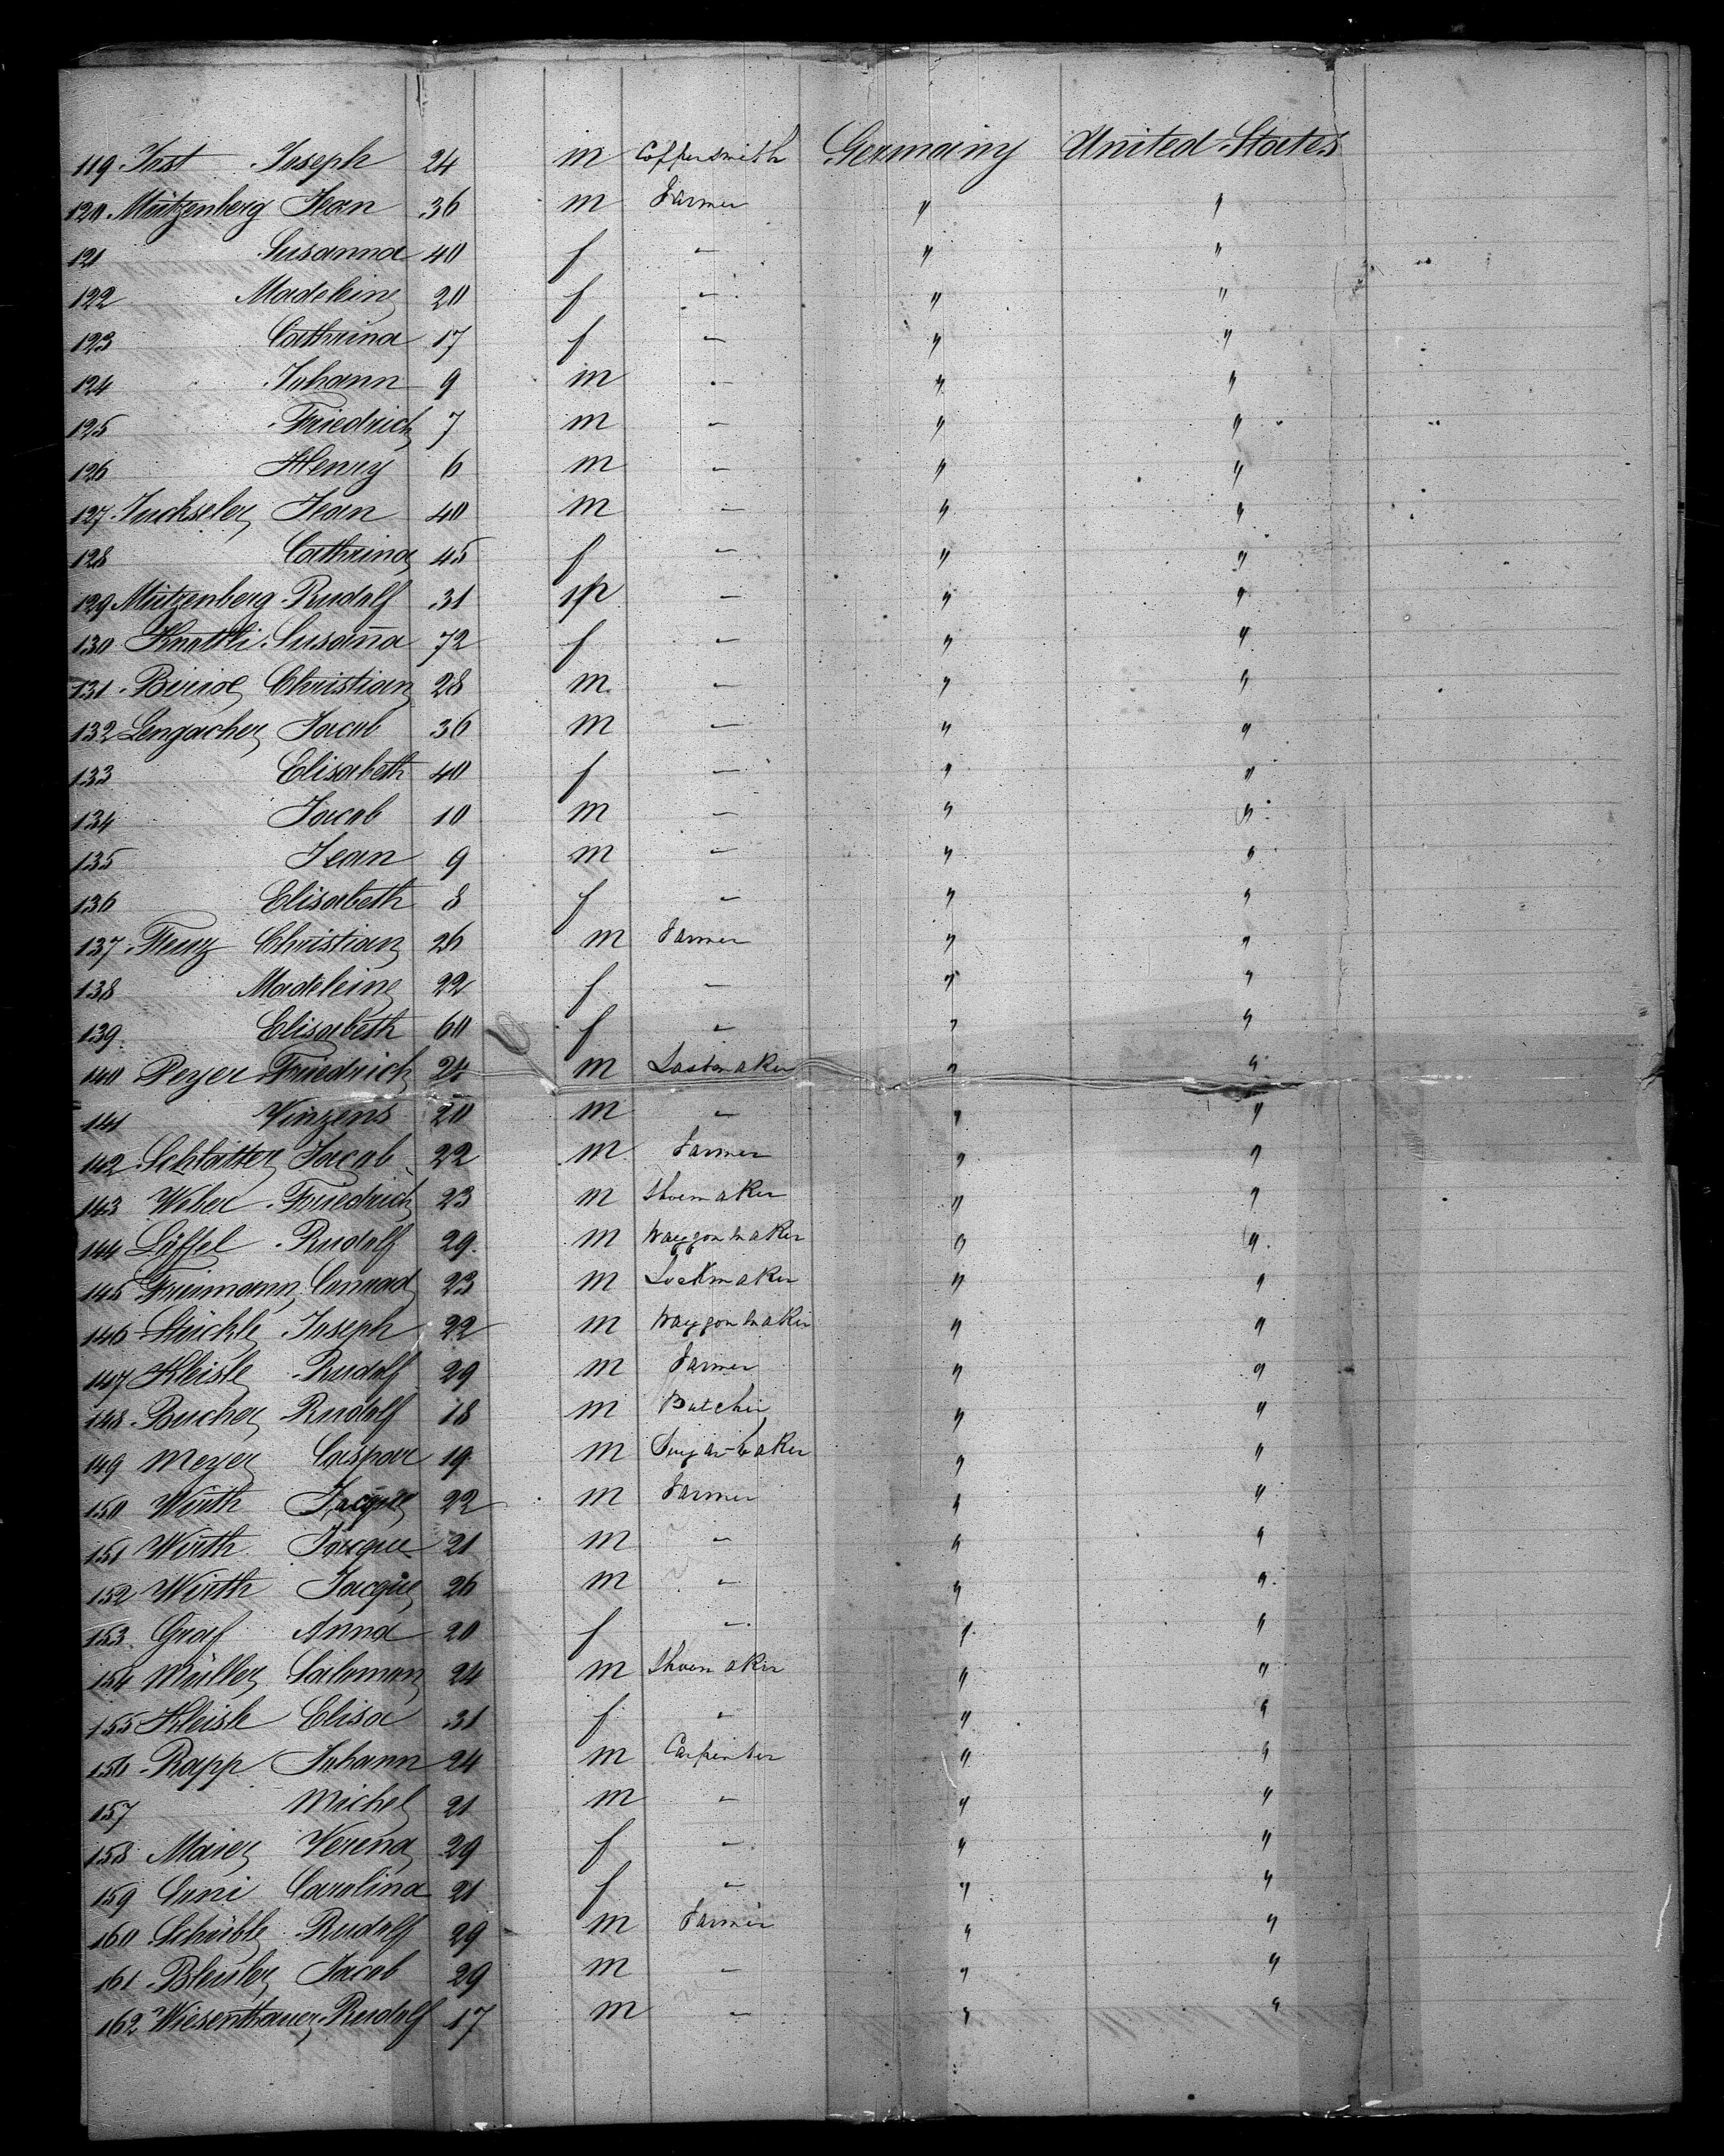 119 Jost Joseph 24 m Coppersmith Germany United States
120 Mützenberg Jean 36 m Farmer " "
121 Susanna 40 f - " "
122 Madeleine 20 f - " "
123 Cathrina 17 f - " "
124 Johann 9 m - " "
125 Friedrich 7 m - " "
126 Henry 6 m - " "
127 Jean 40 m - " "
128 Cathrina 45 f - " "
129 Mützenberg Rudolf 31 m - " "
130 Susana 72 f - " "
131 Christian 28 m - " "
132 Lengacher Jacob 36 m - " "
133 Elisabeth 40 f - " "
134 Jacob 10 m - " "
135 Jean 9 m - " "
136 Elisabeth 8 f - " "
137 Christian 26 m Farmer " "
138 Madeleine 22 f - " "
139 Elisabeth 60 f - " "
140 Peyer Friedrich 24 m Lastmaker " "
141 Vinzens 20 m - " "
142 Schlatter Jacob 22 m Farmer " "
143 Weber Friedrich 23 m Shoemaker " "
144 Löffel Rudolf 29 m Waggonmaker " "
145 Freimann Conrad 23 m Lockmaker " "
146 Stückle Joseph 22 m Waggonmaker " "
147 Rudolf 29 m Farmer " "
148 Bucher Rudolf 18 m Butcher " "
149 Meyer Caspar 19 m Sugar-baker " "
150 Wirth Jacque 22 m Farmer " "
151 Wirth Jacque 21 m - " "
152 Wirth Jacque 26 m - " "
153 Graf Anna 20 f - " "
154 Müller Salomon 24 m Shoemaker " "
155 Elisa 31 f - " "
156 Rapp Johann 24 m Carpenter " "
157 Michel 21 m - " "
158 Maier Verena 29 f - " "
159 Carolina 21 f - " "
160 Schüble Rudolf 29 m Farmer " "
161 Bleuler Jacob 29 m - " "
162 Rudolf 17 m - " "